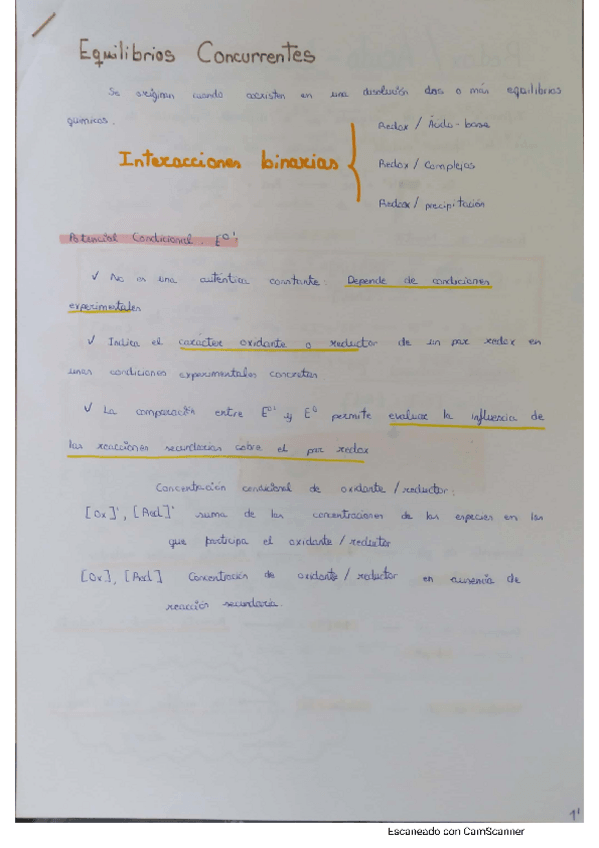 Equilibrios Concurrentes
Se originan cuando coexisten en una disolución dos o más equilibrios
químicos.
Interacciones binarias
Redox / Ácido-base
Redox / Complejos
Redox / precipitación
Potencial Condicional, E⁰':
✓ No es una autentica constante: Depende de condiciones
experimentales
✓ Indica el carácter oxidante o reductor de un par redox en
unas condiciones experimentales concretas
✓ La comparación entre E⁰' y E⁰ permite evaluar la influencia de
las reacciones secundarias sobre el par redox
Concentración condicional de oxidante / reductor:
[Ox]', [Red]' suma de las concentraciones de las especies en las
que participa el oxidante / reductor
[Ox], [Red] Concentración de oxidante / reductor en ausencia de
reacción secundaria.
1'
Escaneado con CamScanner